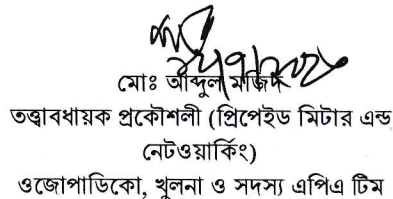 মোঃ আব্দুল মজিদ
তত্ত্বাবধায়ক প্রকৌশলী (প্রিপেইড মিটার এন্ড
নেটওয়ার্কিং)
ওজোপাডিকো, খুলনা ও সদস্য এপিএ টিম